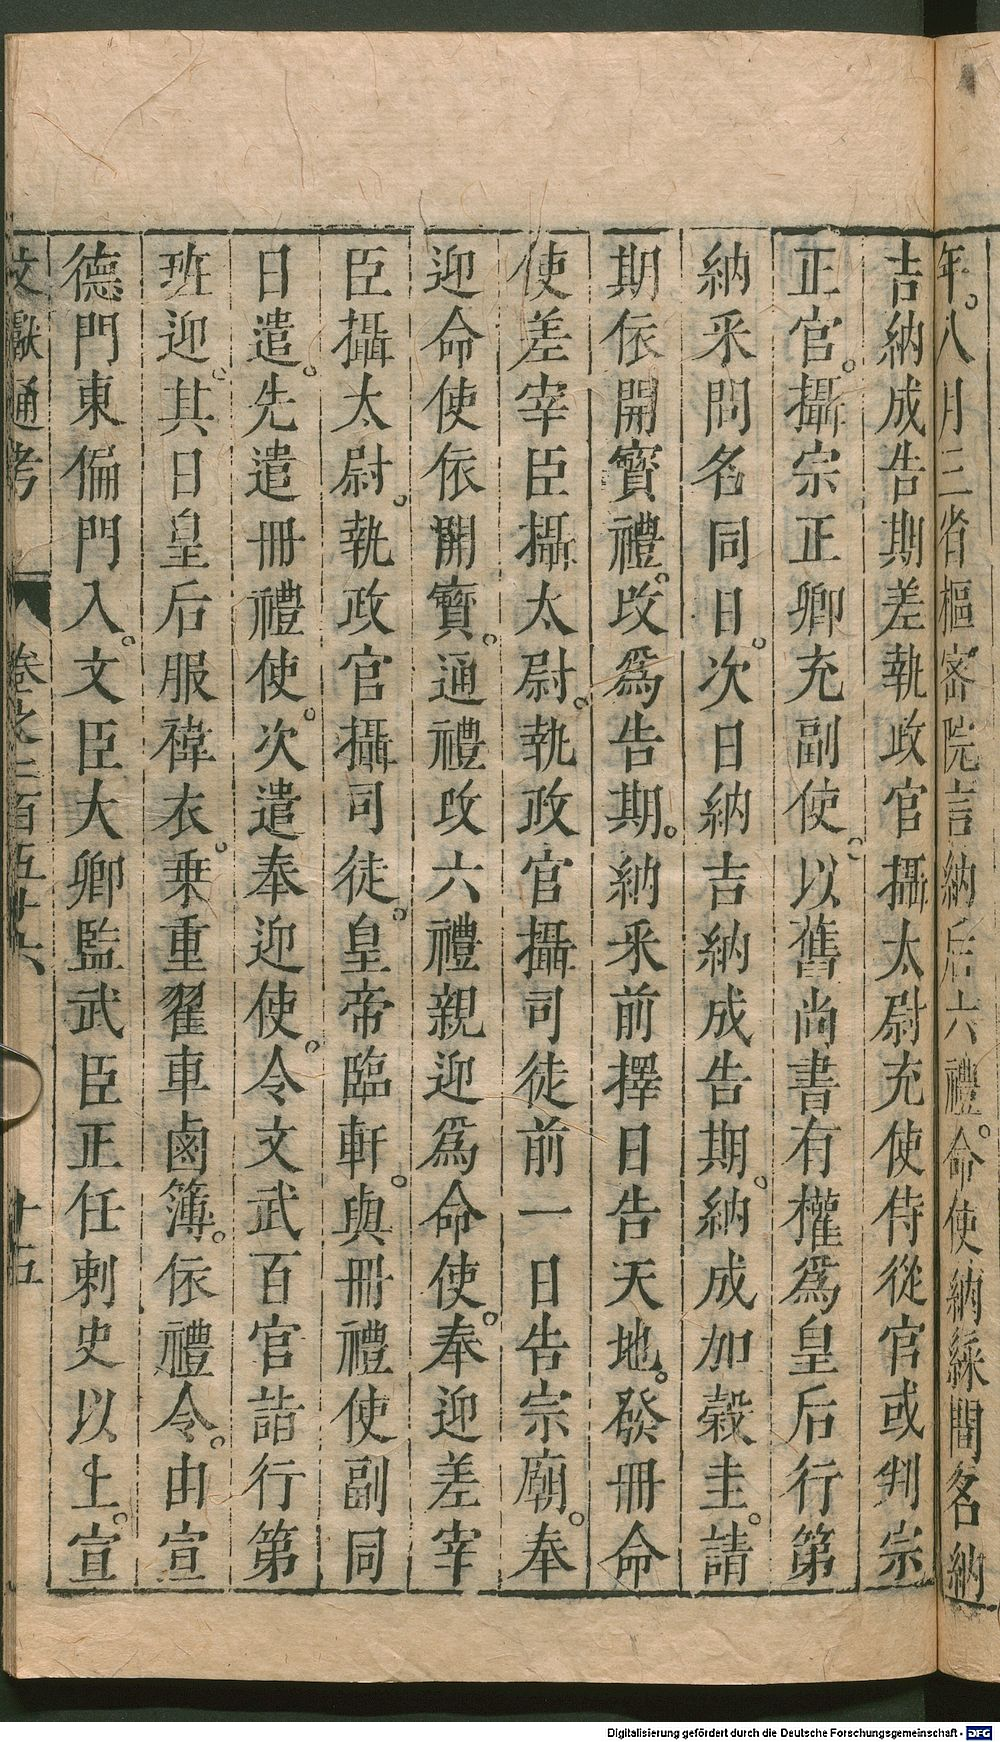 年。八月三省樞密院言納后六禮。命使納綵問名納
吉納成告期差執政官攝太尉充使侍從官或判宗
正官。攝宗正卿充副使。以舊尚書有權爲皇后行第
納釆問名同日。次日納吉納成告期。納成加榖圭。請
期依開寳禮。攺爲告期。納釆前擇日告天地。發冊命
使差宰臣攝太尉。執政官攝司徒前一日告宗廟。奉
迎命使依開寳。通禮攺六禮親迎爲命使。奉迎差宰
臣攝太尉。執政官攝司徒。皇帝臨軒。與冊禮使副同
日遣。先遣冊禮使。次遣奉迎使。令文武百官詣行第
班迎。其日皇后服褘衣。乗重翟車鹵簿。依禮令。由宣
德門東偏門入。文臣大卿監武臣正任刺史以上。宣
文獻通考 卷之二百五十六 十五
Digitalisierung gefördert durch die Deutsche Forschungsgemeinschaft - DFG